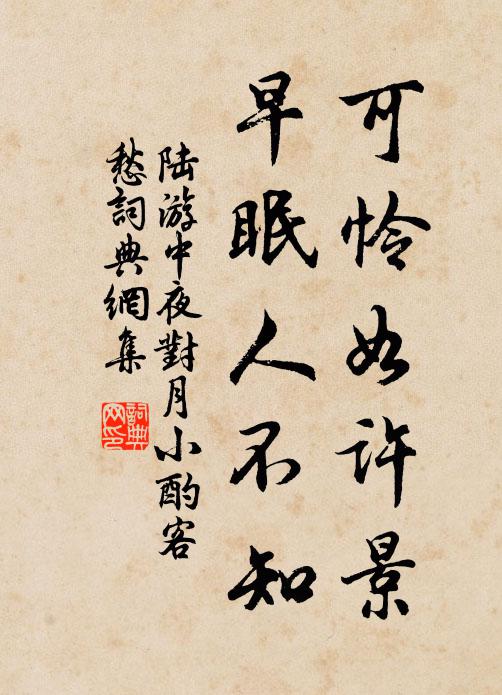 可怜如许景
早眠人不知
陆游中夜對月小酌客
愁詞典網集
詞典网印